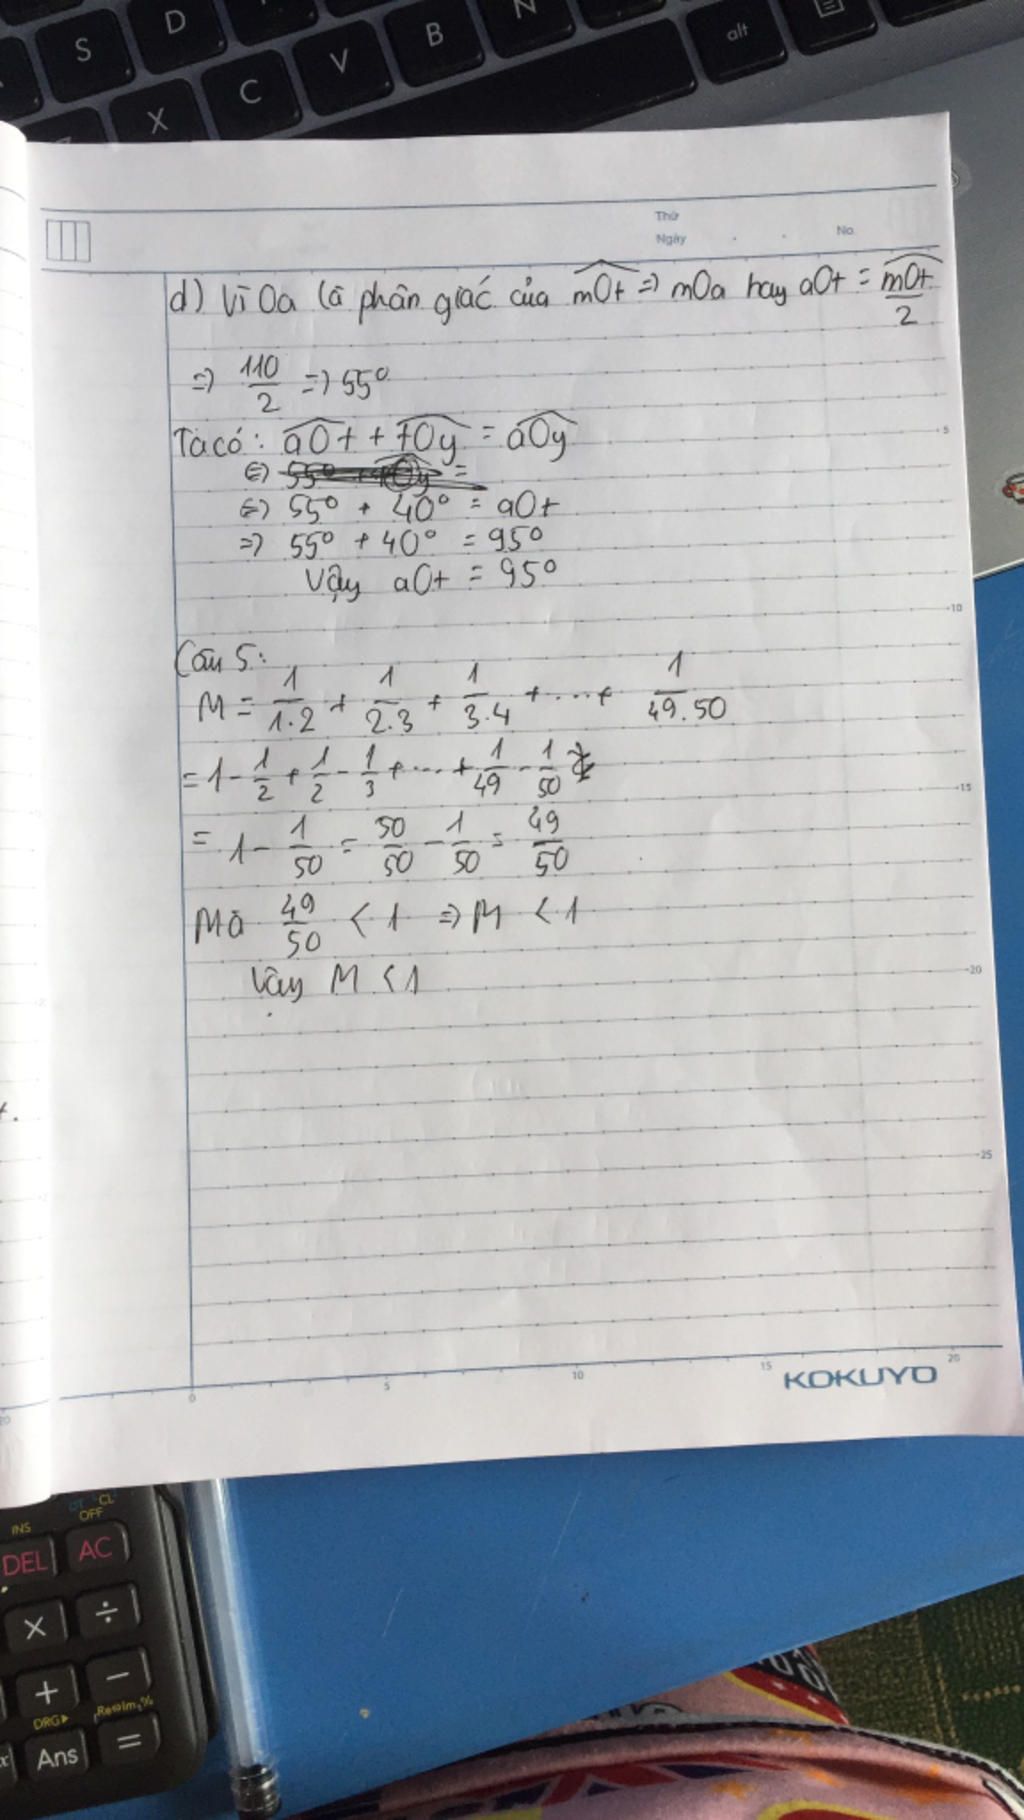 S D B N alt
X C V
Thứ
Ngày
No.
d) Vì Oa là phân giác của mOt => mOa hay aOt = mOt/2
=> 110/2 => 55°
Ta có: aOt + tOy = aOy
<=> 55° + tOy =
<=> 55° + 40° = aOt
=> 55° + 40° = 95°
Vậy aOt = 95°
Câu 5:
M = 1/1.2 + 1/2.3 + 1/3.4 + ... + 1/49.50
= 1 - 1/2 + 1/2 - 1/3 + ... + 1/49 - 1/50
= 1 - 1/50 = 50/50 - 1/50 = 49/50
Mà 49/50 < 1 => M < 1
Vậy M < 1
5
10
15
20
25
0 5 10 15 20
KOKUYO
INS OFF
DEL AC
× ÷
+ −
DRG▶
Ans =